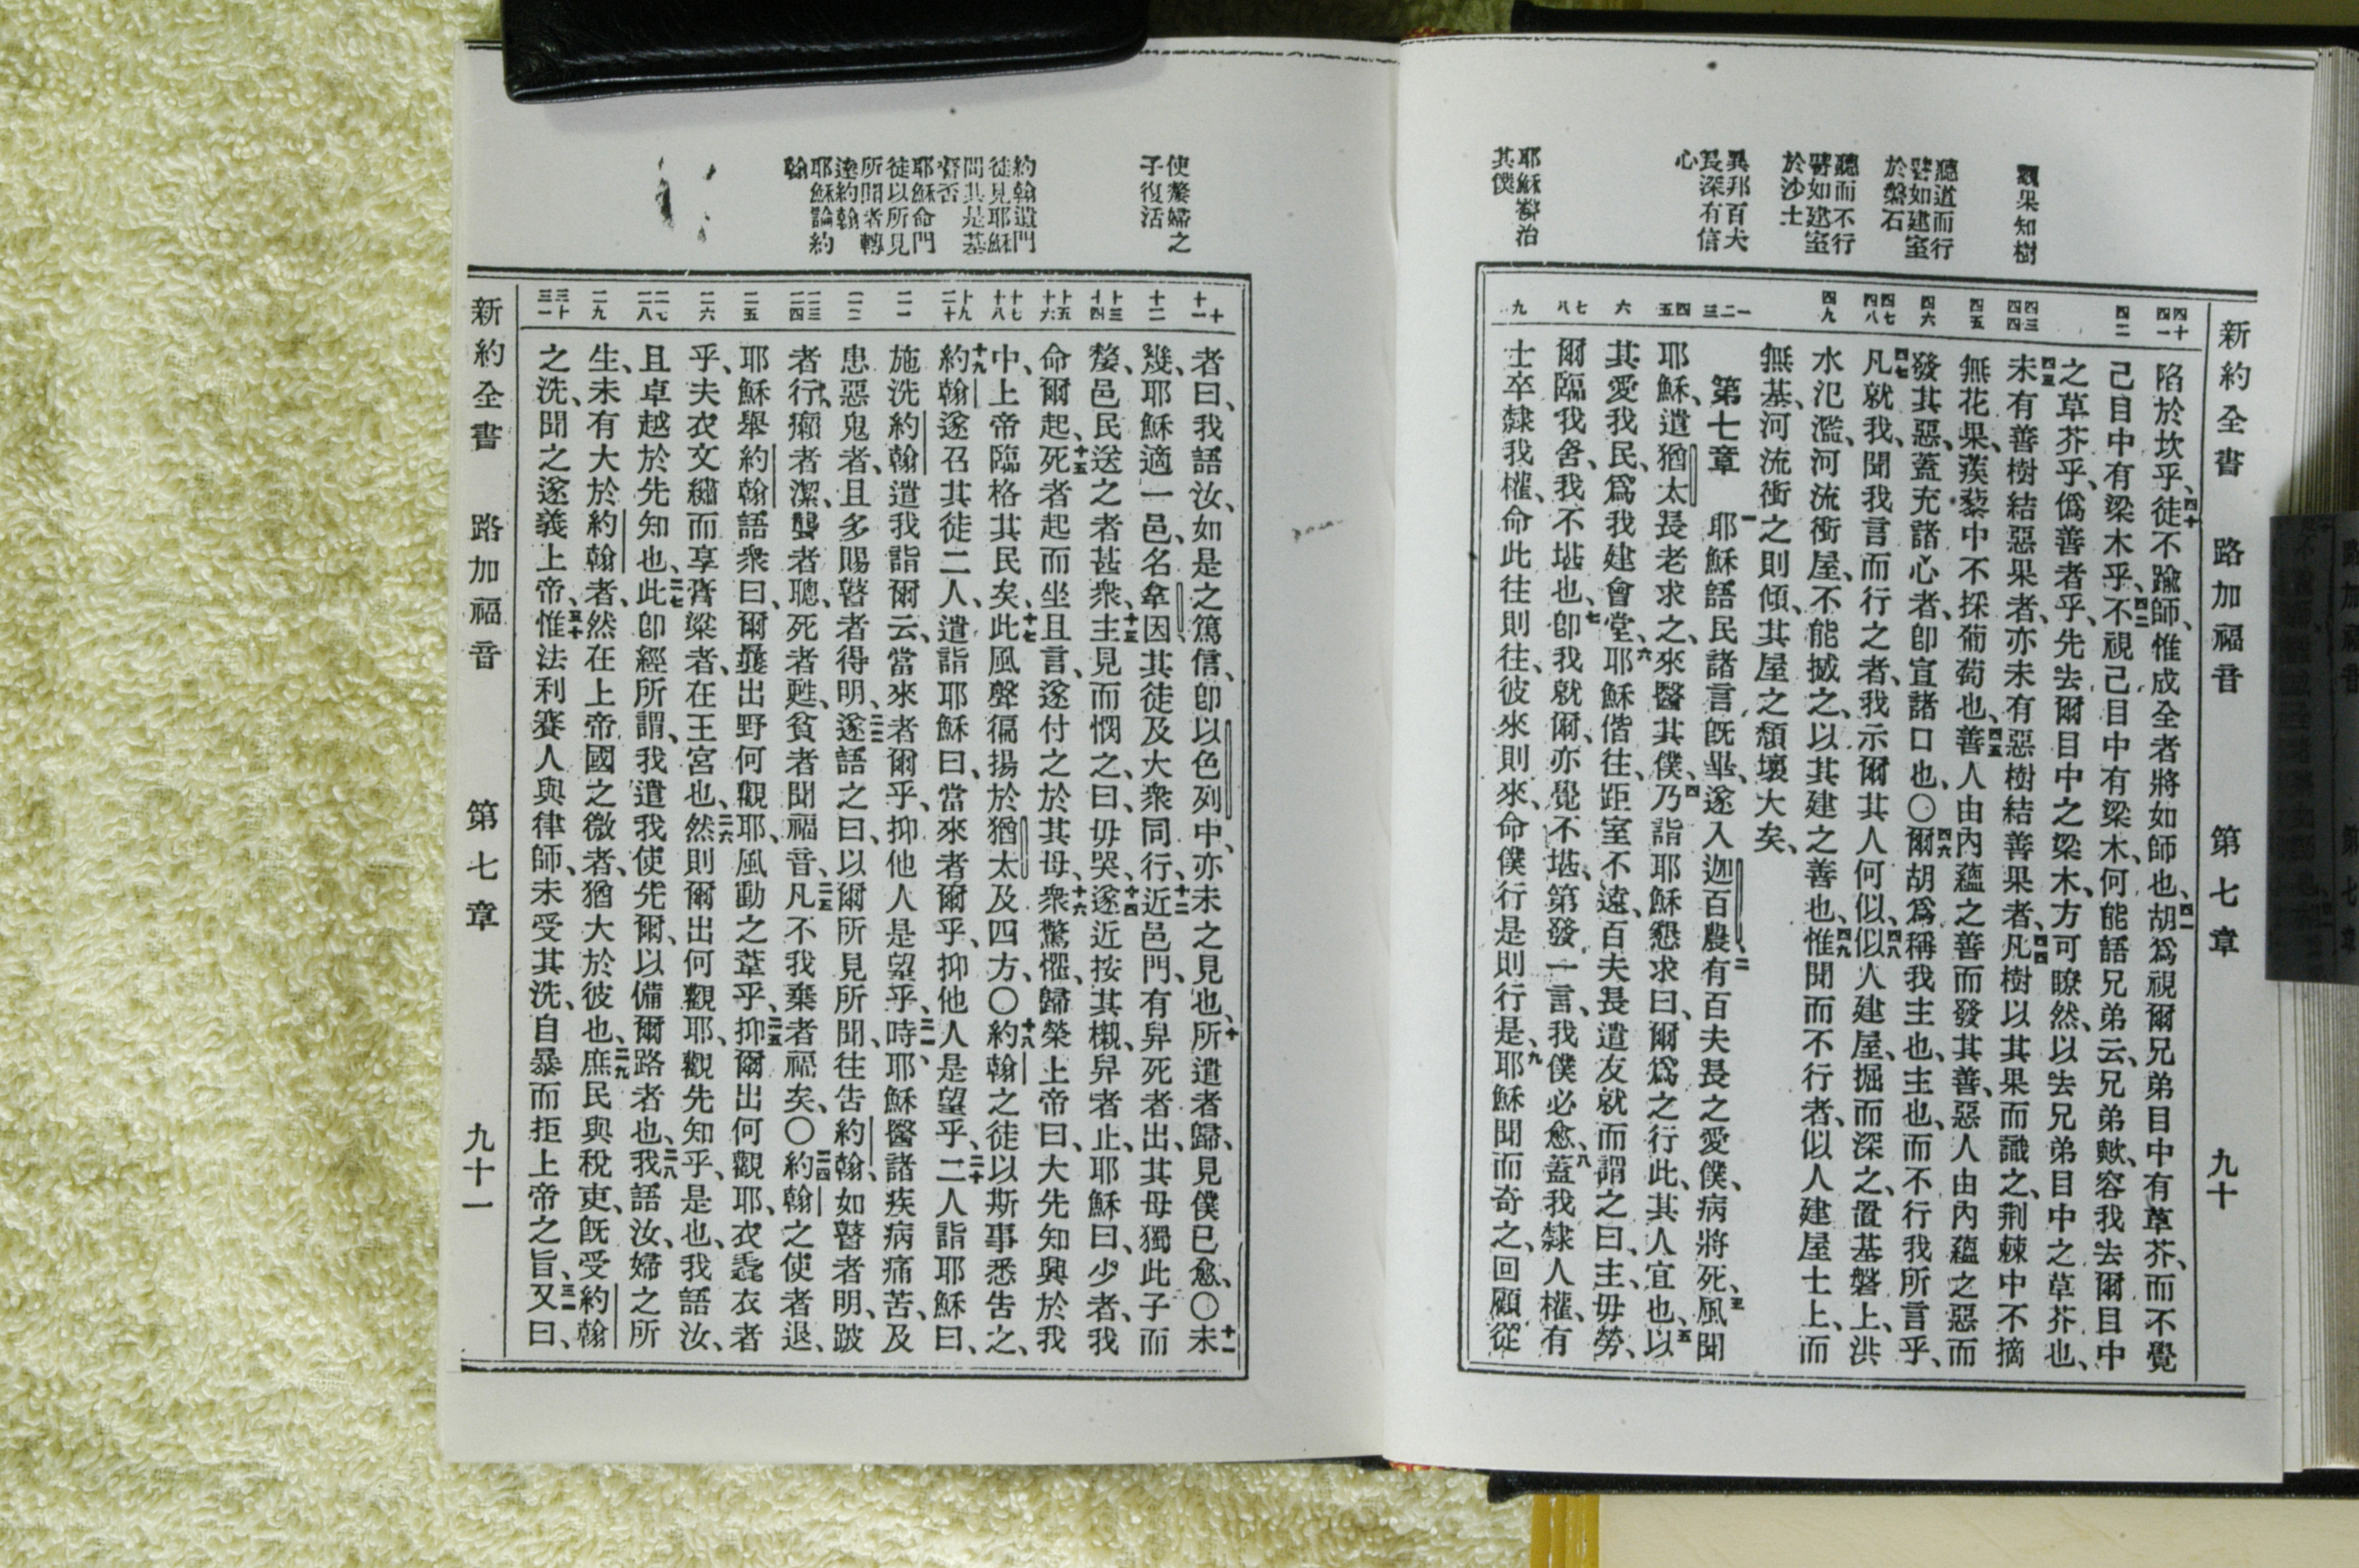 新約全書　路加福音　第七章　九十
觀果知樹
聽道而行
譬如建室
於磐石
聽而不行
譬如建室
於沙土
異邦百夫
長深有信
心
耶穌醫治
其僕
四十
四一
四二
四三
四四
四五
四六
四七
四八
四九
一
二
三
四
五
六
七
八
九
陷於坎乎、四十徒不踰師、惟成全者將如師也、四一胡爲視爾兄弟目中有草芥、而不覺
己目中有梁木乎、四二不視己目中有梁木、何能語兄弟云、兄弟歟、容我去爾目中
之草芥乎、僞善者乎、先去爾目中之梁木、方可瞭然、以去兄弟目中之草芥也、
四三未有善樹結惡果者、亦未有惡樹結善果者、四四凡樹以其果而識之、荆棘中不摘
無花果、蒺藜中不採葡萄也、四五善人由內蘊之善而發其善、惡人由內蘊之惡而
發其惡、蓋充諸心者、卽宣諸口也、〇四六爾胡爲稱我主也、主也、而不行我所言乎、
四七凡就我、聞我言而行之者、我示爾其人何似、四八似人建屋、掘而深之、置基磐上、洪
水氾濫、河流衝屋、不能搣之、以其建之善也、四九惟聞而不行者、似人建屋土上、而
無基、河流衝之則傾、其屋之頹壞大矣、
第七章　一耶穌語民諸言旣畢、遂入迦百農、二有百夫長之愛僕、病將死、三風聞
耶穌、遣猶太長老求之、來醫其僕、四乃詣耶穌懇求曰、爾爲之行此、其人宜也、五以
其愛我民、爲我建會堂、六耶穌偕往、距室不遠、百夫長遣友就而謂之曰、主、毋勞、
爾臨我舍、我不堪也、七卽我就爾、亦覺不堪、第發一言、我僕必愈、八蓋我隸人權、有
士卒隸我權、命此往則往、彼來則來、命僕行是則行是、九耶穌聞而奇之、回顧從
使嫠婦之
子復活
約翰遣門
徒見耶穌
問其是基
督否
耶穌命門
徒以所見
所聞者轉
達約翰
耶穌論約
翰
十
十一
十二
十三
十四
十五
十六
十七
十八
十九
二十
二一
二二
二三
二四
二五
二六
二七
二八
二九
三十
三一
者曰、我語汝、如是之篤信、卽以色列中、亦未之見也、十所遣者歸、見僕已愈、〇十一未
幾、耶穌適一邑、名拿因、其徒及大衆同行、十二近邑門、有舁死者出、其母獨此子而
嫠、邑民送之者甚衆、十三主見而憫之、曰、毋哭、十四遂近按其櫬、舁者止、耶穌曰、少者、我
命爾起、十五死者起而坐、且言、遂付之於其母、十六衆驚懼、歸榮上帝曰、大先知興於我
中、上帝臨格其民矣、十七此風聲徧揚於猶太及四方、〇十八約翰之徒以斯事悉告之、
十九約翰遂召其徒二人、遣詣耶穌曰、當來者爾乎、抑他人是望乎、二十二人詣耶穌曰、
施洗約翰遣我詣爾云、當來者爾乎、抑他人是望乎、二一時、耶穌醫諸疾病痛苦、及
患惡鬼者、且多賜瞽者得明、二二遂語之曰、以爾所見所聞、往告約翰、如瞽者明、跛
者行、癩者潔、聾者聰、死者甦、貧者聞福音、二三凡不我棄者福矣、〇二四約翰之使者退、
耶穌舉約翰語衆曰、爾曩出野何觀耶、風動之葦乎、二五抑爾出何觀耶、衣毳衣者
乎、夫衣文繡而享膏粱者、在王宮也、二六然則爾出何觀耶、觀先知乎、是也、我語汝、
且卓越於先知也、二七此卽經所謂、我遣我使先爾、以備爾路者也、二八我語汝、婦之所
生、未有大於約翰者、然在上帝國之微者、猶大於彼也、二九庶民與稅吏、旣受約翰
之洗、聞之遂義上帝、三十惟法利賽人與律師、未受其洗、自暴而拒上帝之旨、三一又曰、
新約全書　路加福音　第七章　九十一